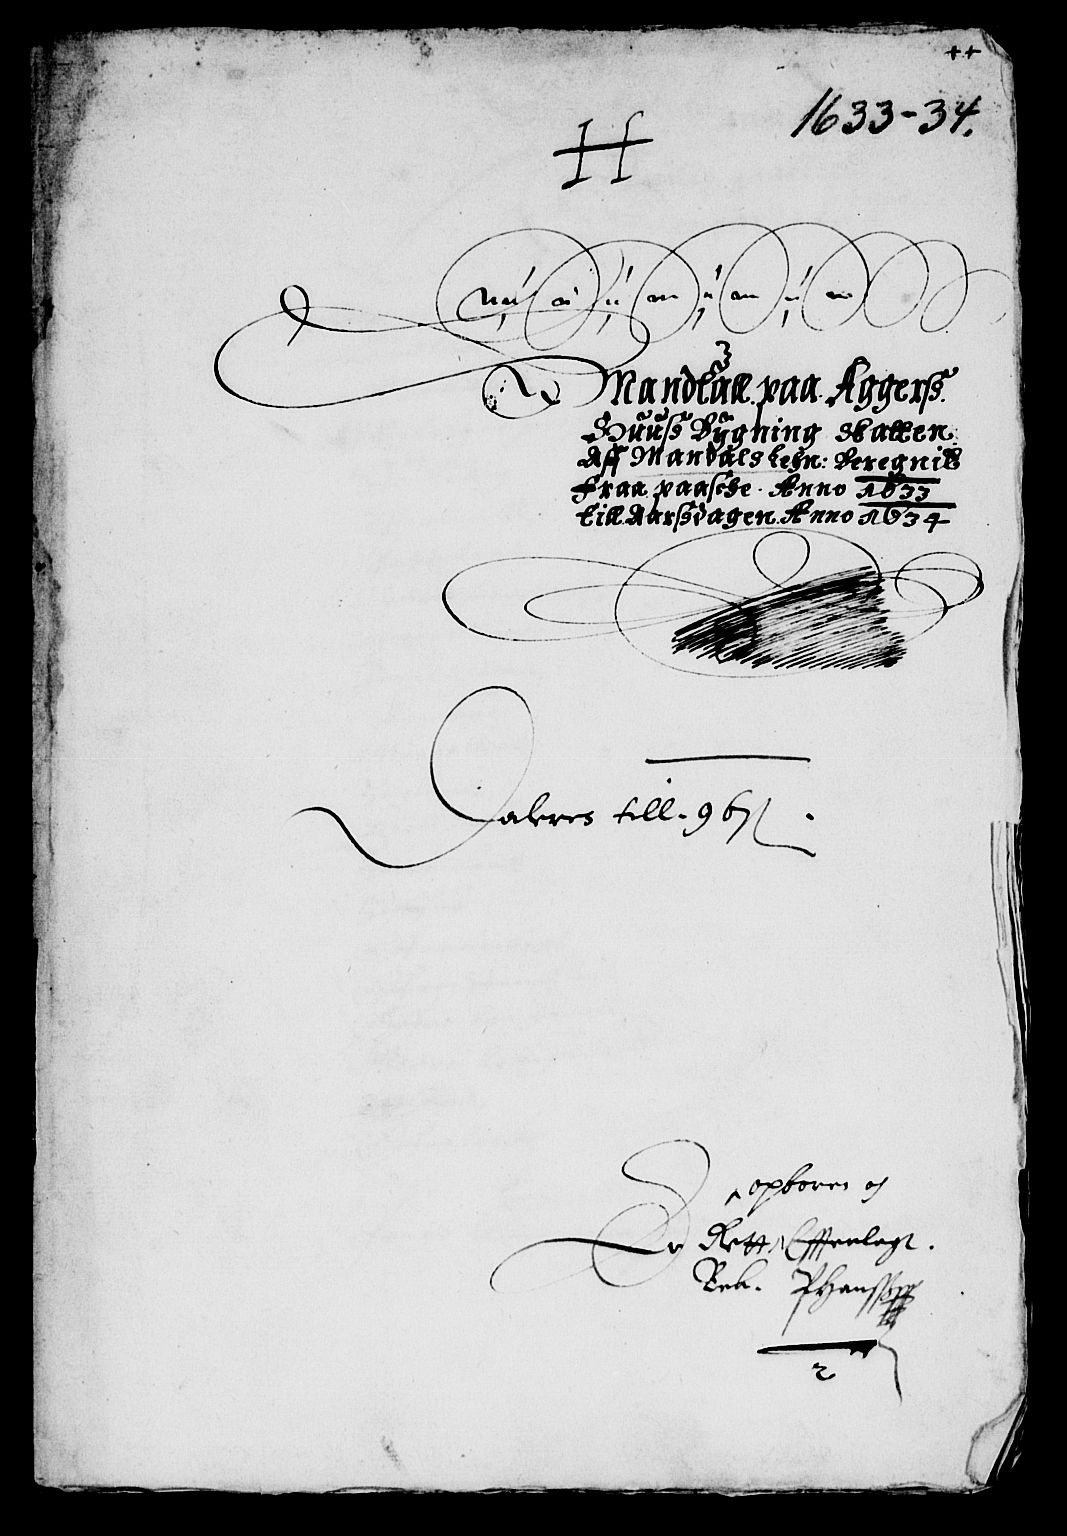 ++
1633-34.
H
Mandtall paa Aggerß
Huuß Bÿgning Skatten
Aff Mandals Lehn: Beregnis
Fraa paasche Anno 1633
till Aarßdagen Anno 1634
till
opboren oc
Er Rett
P Hanss
2